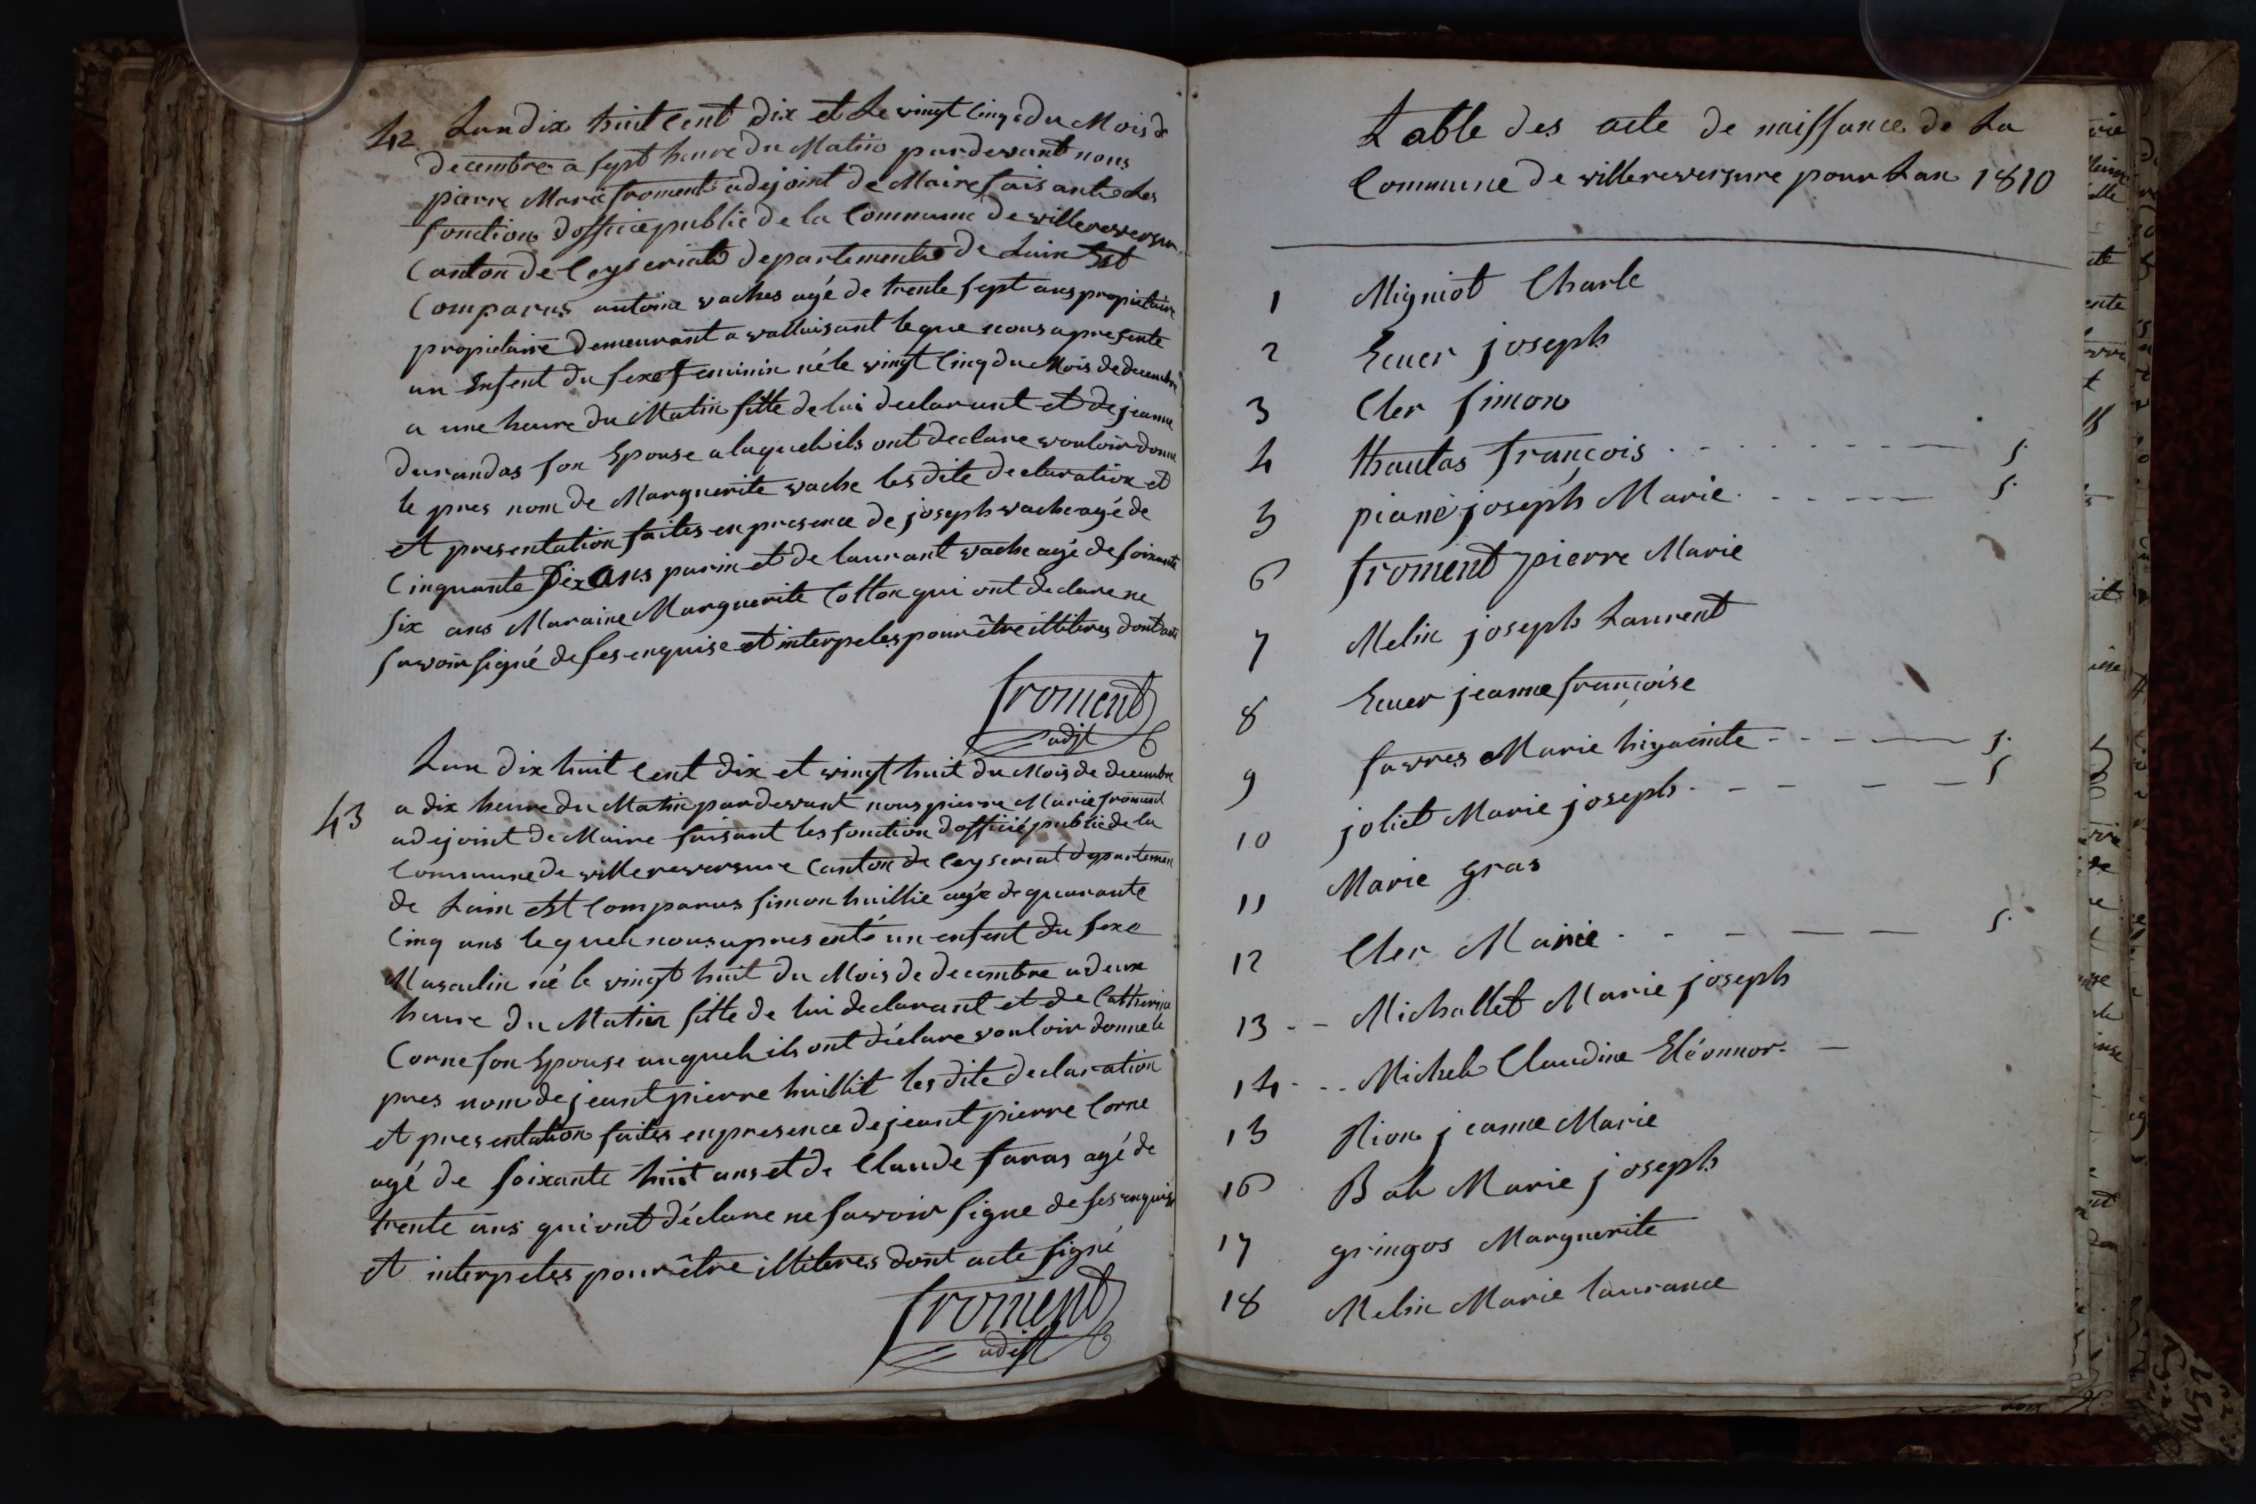 42 Lan dix huit Cent dix et Le vingt Cinq du Mois de
decembre a sept heure du Matin pardevant nous
pierre Marie froment adejoint de Maire faisant Les
fonction dofficie public de la Commune de villereversure
Canton de Ceyseriat departement de Lain Est
Comparus antoine vaches agé de trente sept ans propietaire
propietaire demeurant a valluisant leque nous a presente
un Enfent du sexe feminin né le vingt Cinq du Mois de decembre
a une heure du Matin fille de lui declarant et de jeanne
durandas son Epouse a laqueh ils ont declare vouloir donne
le pres nom de Marguerite vache les dite declaration et
et presentation faites en presence de joseph vache agé de
Cinquante dix ans parin et de laurant vache agé de soixante
six ans Maraine Marguerite Cotton qui ont declare ne
savoir signé de ses enquise et interpeles pour être illiteres dont acte
froment
adjt
43 Lan dix huit Cent dix et vingt huit du Mois de decembre
a dix heure du Matin pardevant nous pierre Marie froment
adejoint de Maire faisant les fonction dofficié public de la
Commune de villereversure Canton de Ceyseriat departemen
de Lain est Comparus simon huillie agé de quarante
Cinq ans lequeh nous a presenté un enfent du sexe
Masculin né le vingt huit du Mois de decembre a deux
heure du Matin fille de lui declarant et de Catherine
Corne son Epouse auqueh ils ont déclare vouloir donne le
pres nom de jeant pierre huillit les dite declaration
et presentation faites en presence de jeant pierre Corne
agé de soixante huit ans et de Claude faras agé de
trente ans qui ont déclare ne savoir signe de ses enquise
et interpeles pour être illiteres dont acte signé
froment
adejt
Table des acte de naissance de La
Commune de villereversure pour Lan 1810
1 Migniot Charle
2 Ecuer joseph
3 Cler simon
4 thautas françois s.
5 piané joseph Marie s.
6 froment pierre Marie
7 Melin joseph Laurent
8 Ecuer jeanne françoise
9 favres Marie hiyacinte s.
10 joliet Marie joseph s
11 Marie gras
12 Cler Marie s.
13 Michallet Marie joseph
14 Micheh Claudine Eléonnor
15 Rion jeanne Marie
16 Bah Marie joseph
17 gringos Marguerite
18 Melin Marie laurance